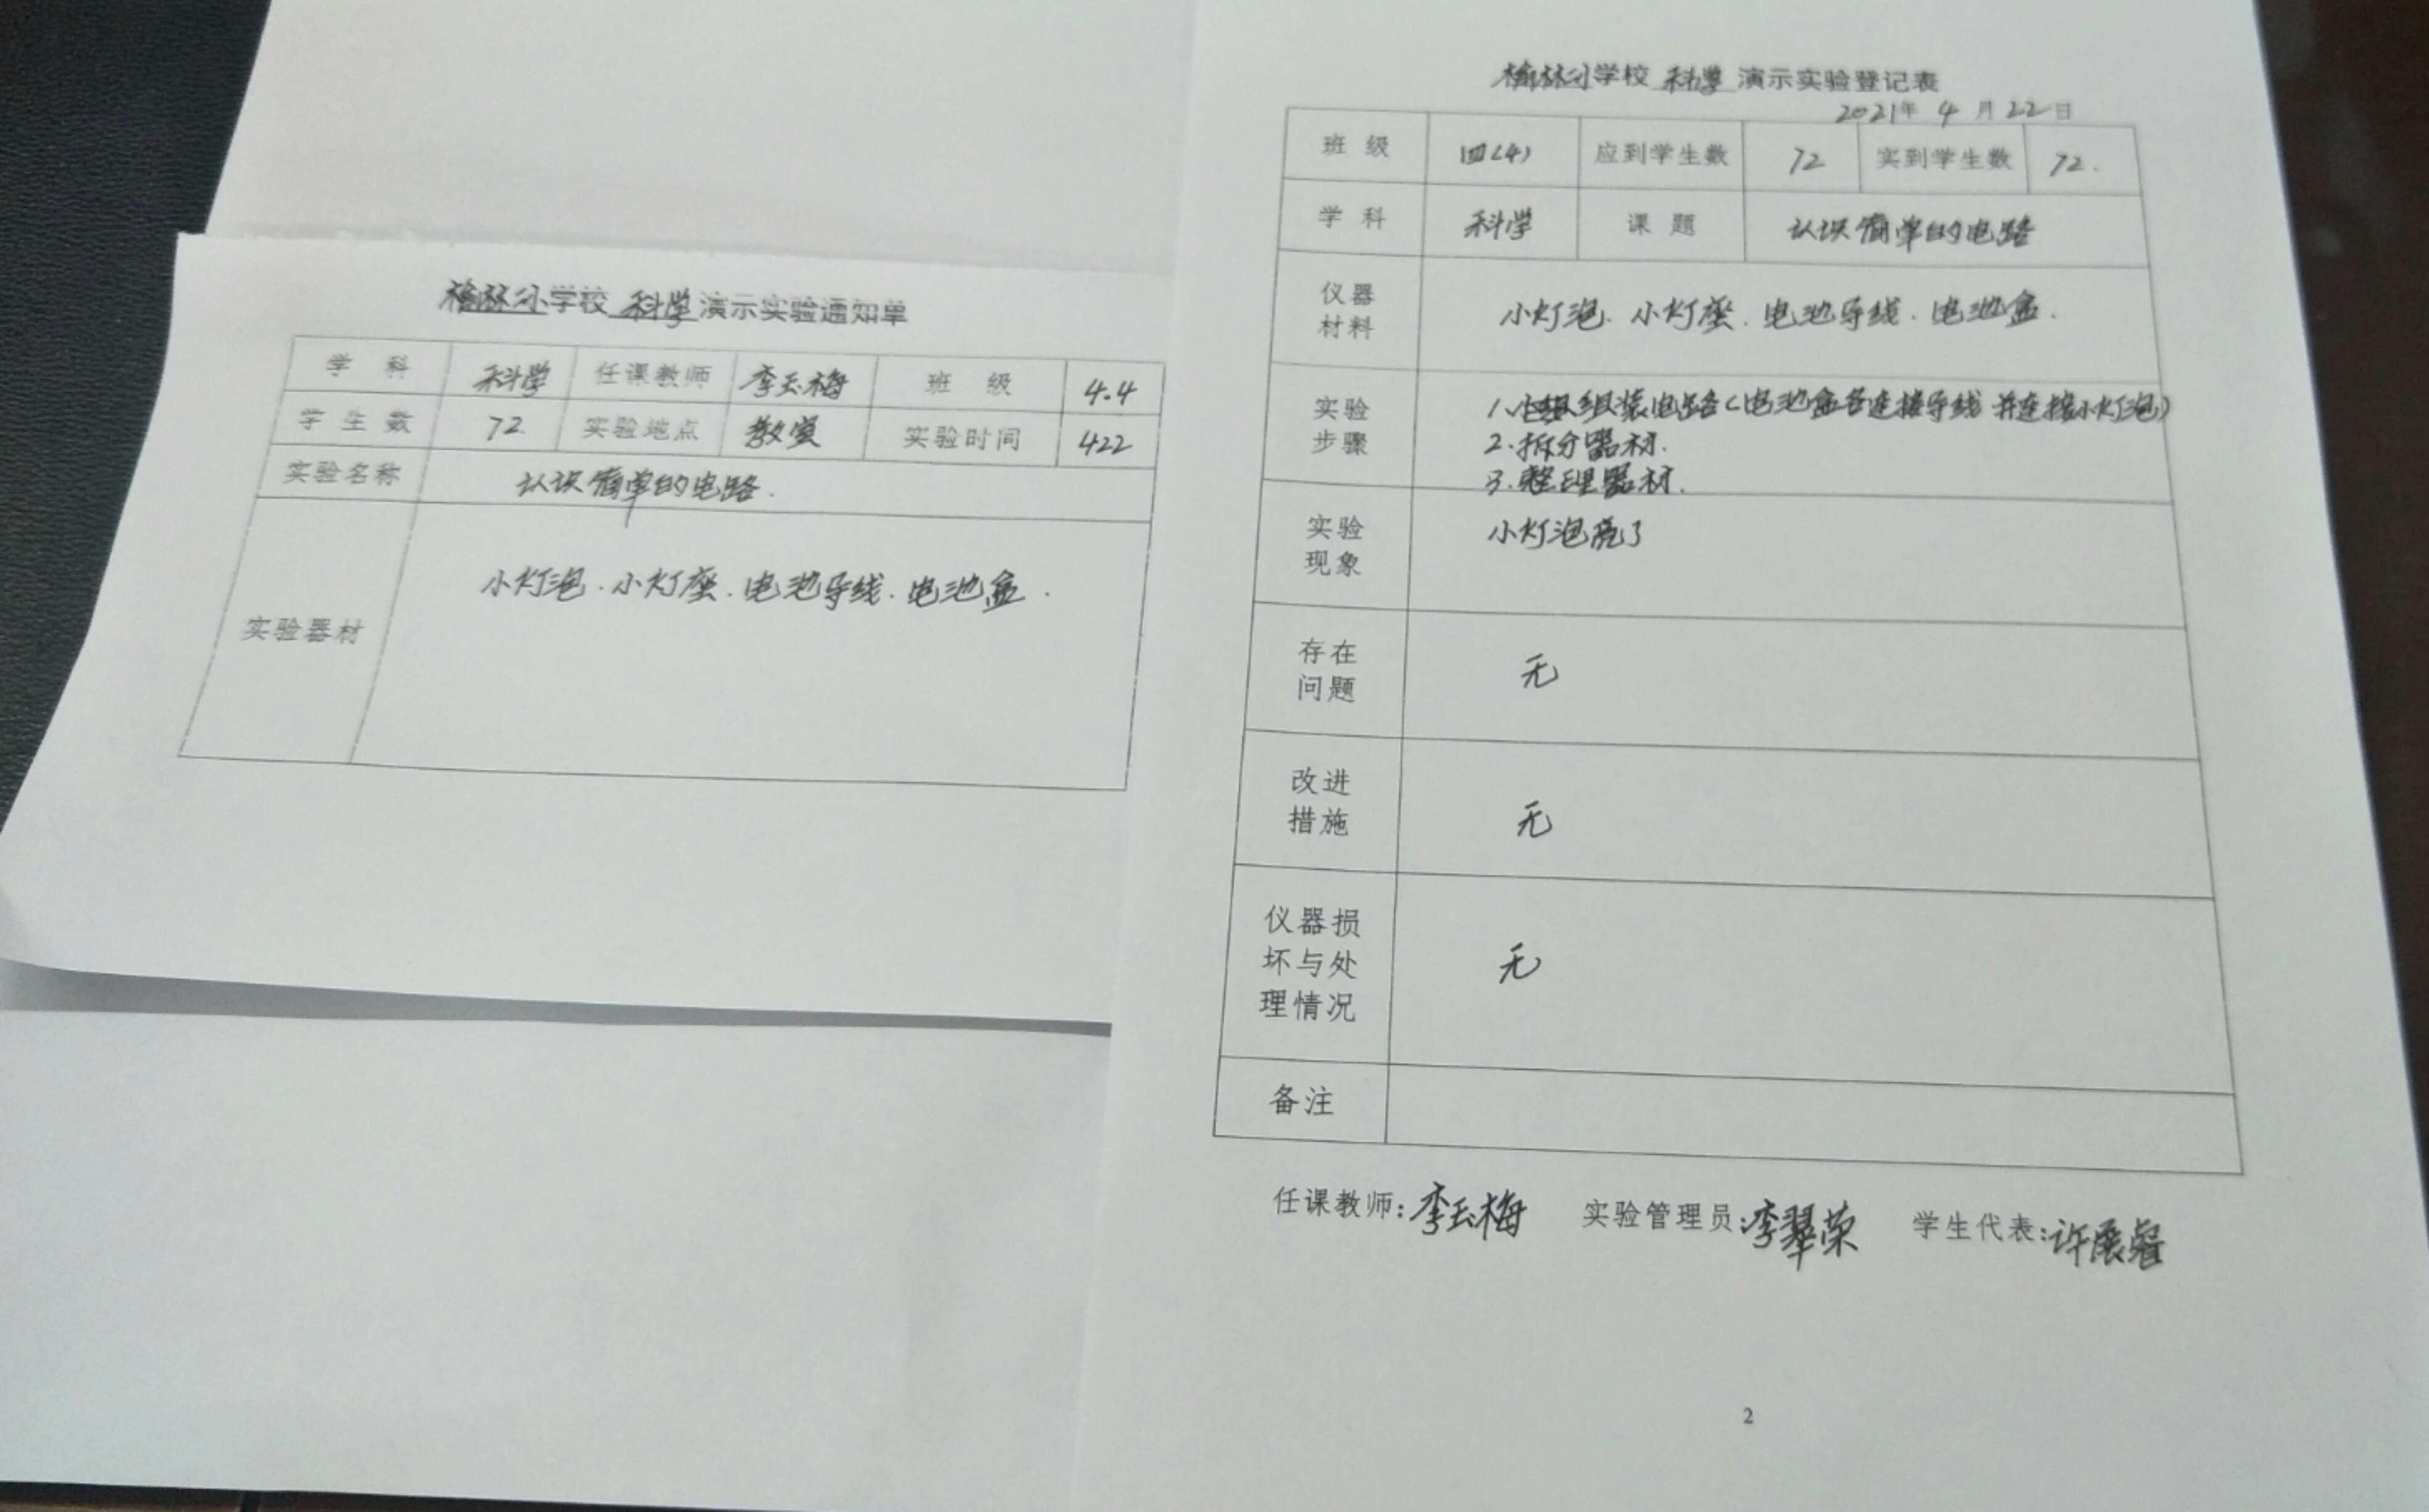 榆林小学校 科学 演示实验通知单
学 科 科学 任课教师 李玉梅 班 级 4.4
学生数 72 实验地点 教室 实验时间 422
实验名称 认识简单的电路.
实验器材 小灯泡.小灯座.电池导线.电池盒.
榆林小学校 科学 演示实验登记表
2021年 4 月 22 日
班 级 四(4) 应到学生数 72 实到学生数 72.
学 科 科学 课 题 认识简单的电路
仪器
材料
小灯泡.小灯座.电池导线.电池盒.
实验
步骤
1.组装电路(电池盒各连接导线 并连接小灯泡)
2.拆分器材.
3.整理器材.
实验
现象
小灯泡亮了
存在
问题
无
改进
措施
无
仪器损
坏与处
理情况
无
备注
任课教师:李玉梅 实验管理员:李翠荣 学生代表:许展睿
2